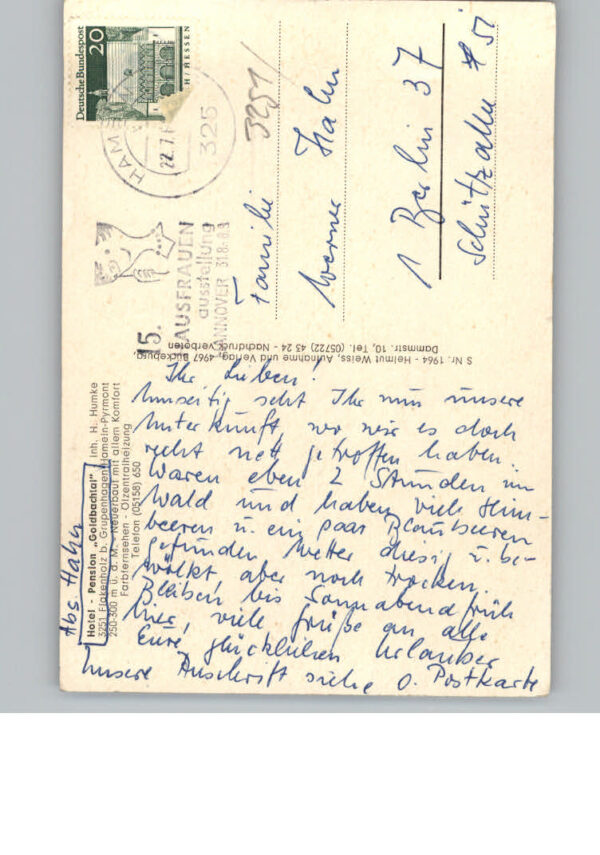 Deutsche Bundespost
20
H/HESSEN
HAME
22.7.
325
3251/
15.
AUSFRAUEN
ausstellung
HANNOVER 31.8.-8.9
Familie
Werner Hahn
1 Berlin 37
Schützallee 51
S Nr. 1964 - Helmut Weiss, Aufnahme und Verlag, 4967 Bückeburg,
Dammstr. 10, Tel. (05722) 43 24 - Nachdruck verboten
Abs Hahn
Hotel - Pension „Goldbachtal" Inh. H. Humke
3251 Flakenholz b. Grupenhagen/Hameln-Pyrmont
250-300 m ü. d. M. - Neuerbaut mit allem Komfort
Farbfernsehen - Ölzentralheizung
Telefon (05158) 650
Ihr Lieben!
Umseitig seht Ihr nun unsere
Unterkunft, wo wir es doch
recht nett getroffen haben.
Waren eben 2 Stunden im
Wald und haben viele Him-
beeren u. ein paar Blaubeeren
gefunden. Wetter diesig u. be-
wölkt, aber noch trocken.
Bleiben bis Sonnabend früh
hier, viele Grüße an alle
Eure glücklichen Urlauber
Unsere Anschrift siehe o. Postkarte